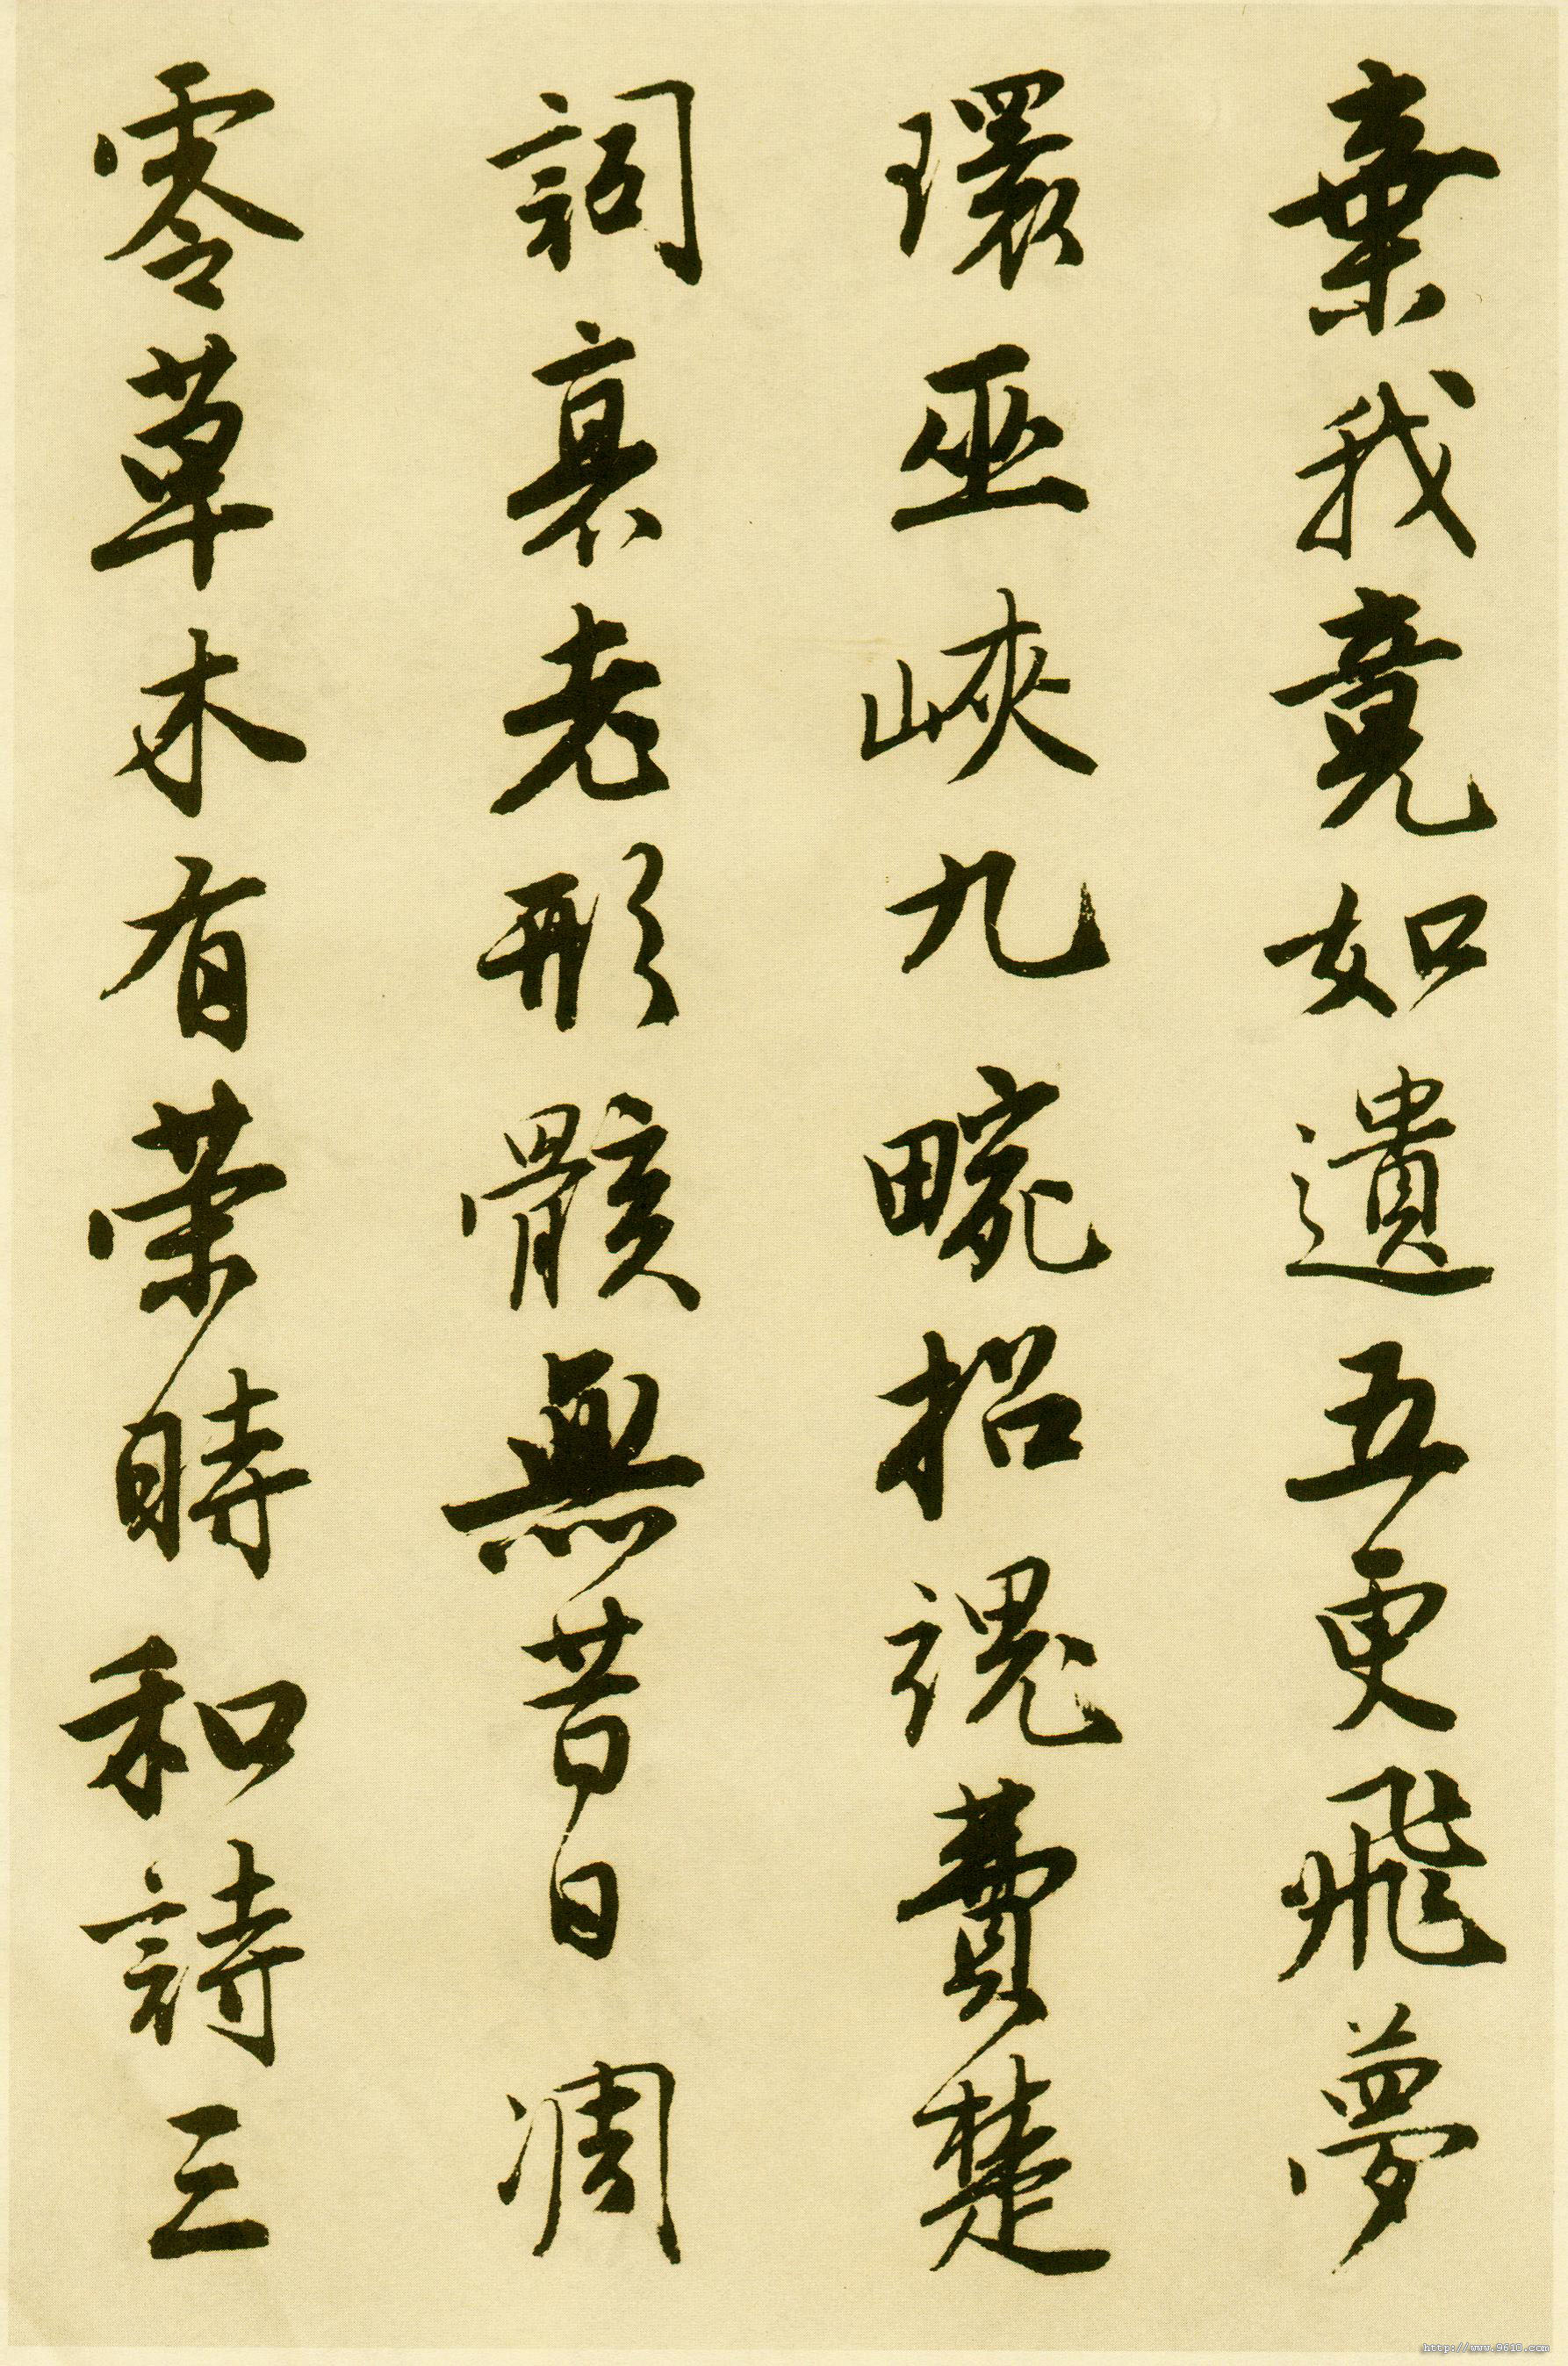 棄我竟如遺五更飛夢
環巫峽九畹招魂費楚
詞衰老形骸無昔日凋
零草木有榮時和詩三
http://www.9610.com